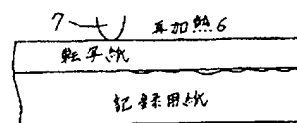 7 再加熱6
転写紙
記録用紙